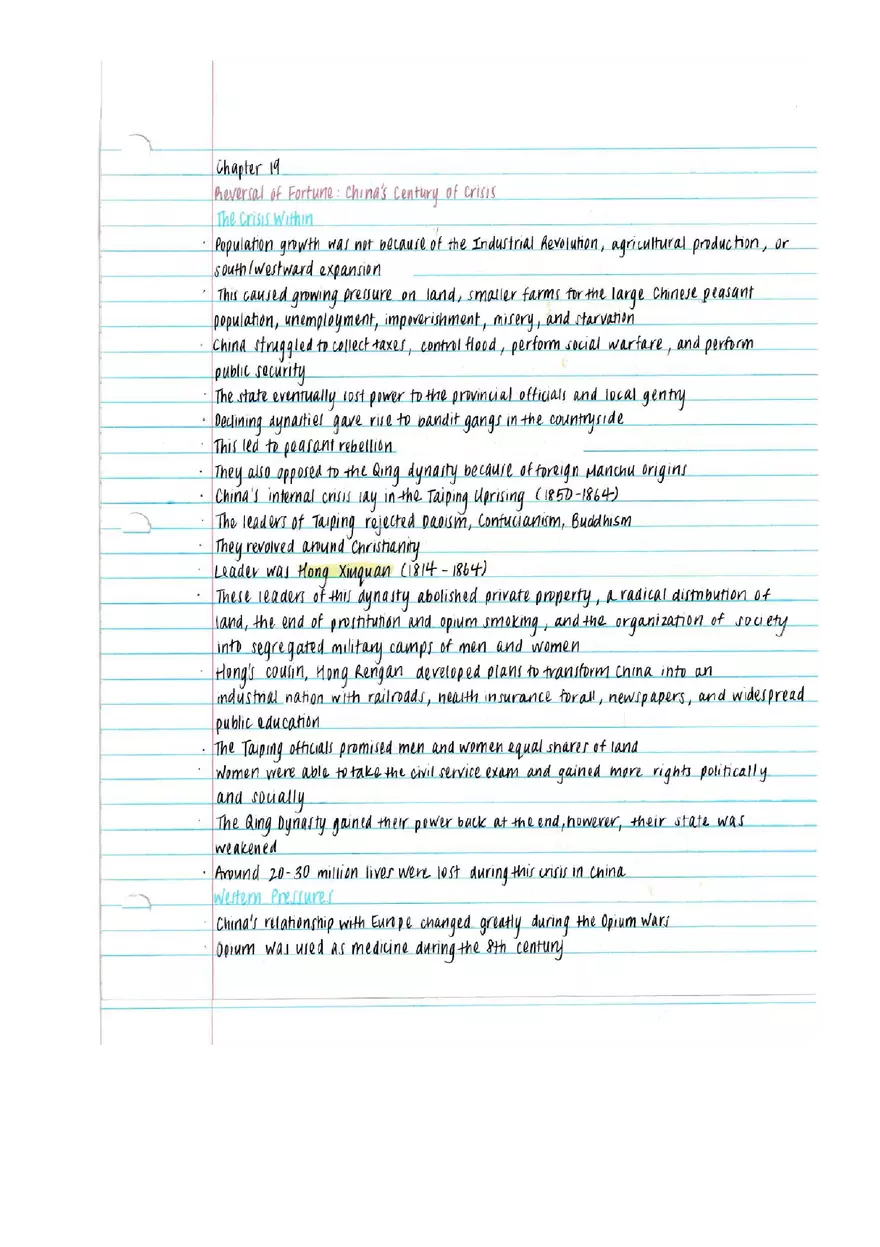 Chapter 19
Reversal of Fortune: China's Century of Crisis
The Crisis Within
· Population growth was not because of the Industrial Revolution, agricultural production, or
south/westward expansion
· This caused growing pressure on land, smaller farms for the large Chinese peasant
population, unemployment, impoverishment, misery, and starvation
· China struggled to collect taxes, control flood, perform social warfare, and perform
public security
· The state eventually lost power to the provincial officials and local gentry
· Declining dynasties gave rise to bandit gangs in the countryside
· This led to peasant rebellion
· They also opposed to the Qing dynasty because of foreign Manchu origins
· China's internal crisis lay in the Taiping Uprising (1850-1864)
· The leaders of Taiping rejected Daoism, Confucianism, Buddhism
· They revolved around Christianity
· Leader was Hong Xiuquan (1814-1864)
· These leaders of this dynasty abolished private property, a radical distribution of
land, the end of prostitution and opium smoking, and the organization of society
into segregated military camps of men and women
· Hong's cousin, Hong Rengan developed plans to transform China into an
industrial nation with railroads, health insurance for all, newspapers, and widespread
public education
· The Taiping officials promised men and women equal shares of land
· Women were able to take the civil service exam and gained more rights politically
and socially
· The Qing Dynasty gained their power back at the end, however, their state was
weakened
· Around 20-30 million lives were lost during this crisis in China
Western Pressures
· China's relationship with Europe changed greatly during the Opium Wars
· Opium was used as medicine during the 8th century